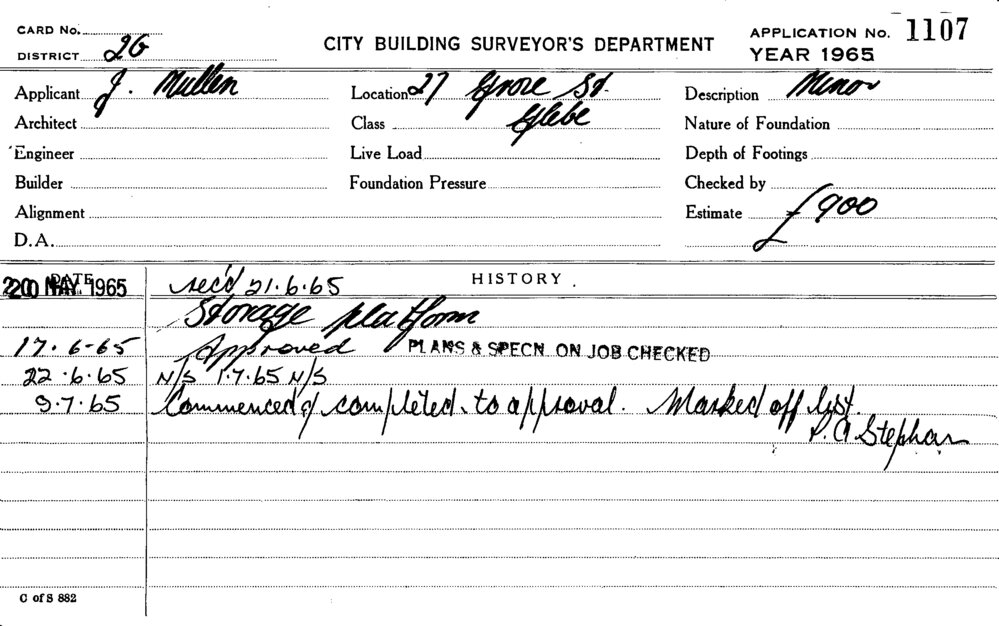 CARD No.
DISTRICT 2G
CITY BUILDING SURVEYOR'S DEPARTMENT
APPLICATION No. 1107
YEAR 1965
Applicant J. Mullen
Location 27 Grose St.
Description Minor
Architect
Class Glebe
Nature of Foundation
Engineer
Live Load
Depth of Footings
Builder
Foundation Pressure
Checked by
Alignment
Estimate £900
D.A.
DATE
HISTORY
20 MAY 1965 rec'd 21.6.65
Storage platform
17.6-65 Approved PLANS & SPECN. ON JOB CHECKED
22.6.65 N/S 1.7.65 N/S
9.7.65 Commenced & completed to approval. Marked off list.
P. A Stephan
C of S 882